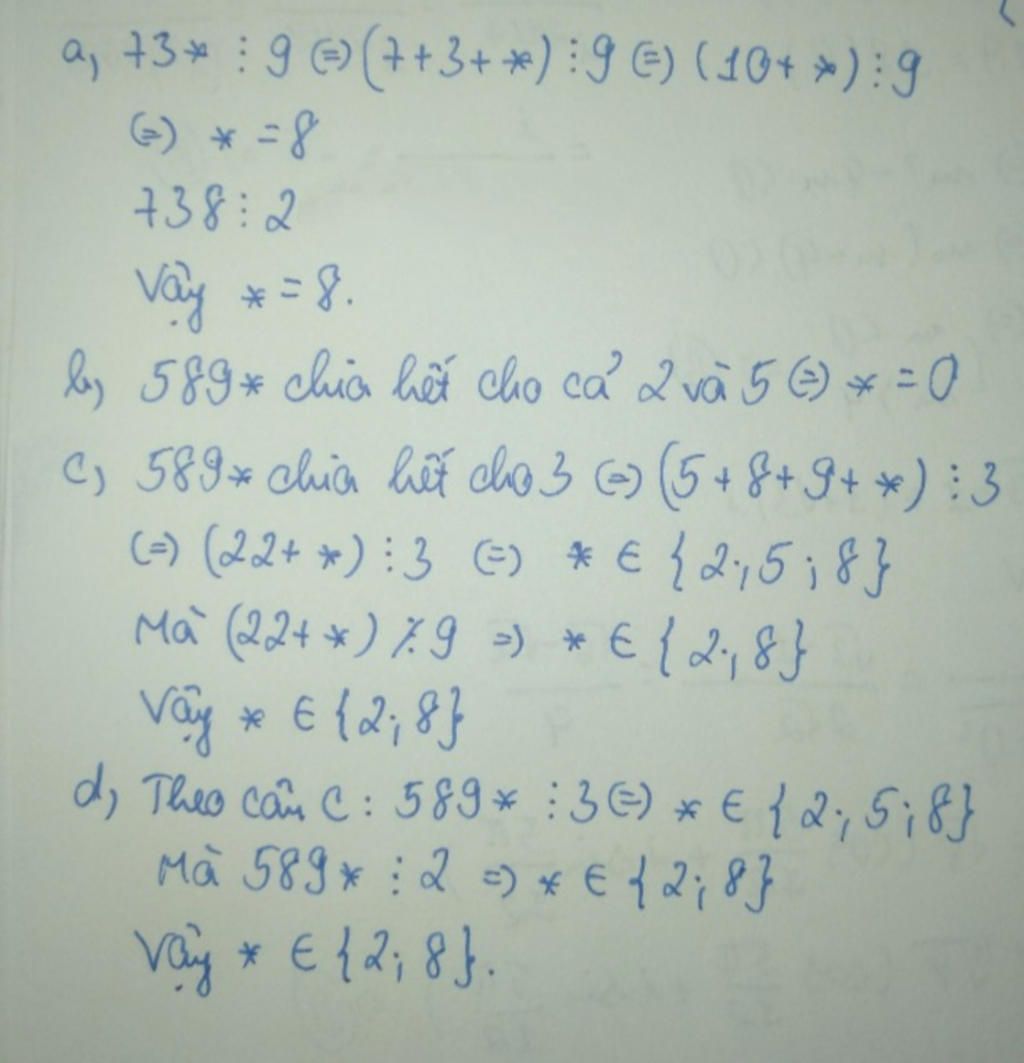 a, 73* ⋮ 9 (=) (7+3+*) ⋮ 9 (=) (10+ *) ⋮ 9
(=) * = 8
738 ⋮ 2
Vậy * = 8.
b, 589* chia hết cho cả 2 và 5 (=) * = 0
c, 589* chia hết cho 3 (=) (5+8+9+*) ⋮ 3
(=) (22+ *) ⋮ 3 (=) * ∈ {2; 5; 8}
Mà (22+ *) ⋮̸ 9 => * ∈ {2; 8}
Vậy * ∈ {2; 8}
d, Theo câu c: 589* ⋮ 3 (=) * ∈ {2; 5; 8}
Mà 589* ⋮ 2 => * ∈ {2; 8}
Vậy * ∈ {2; 8}.